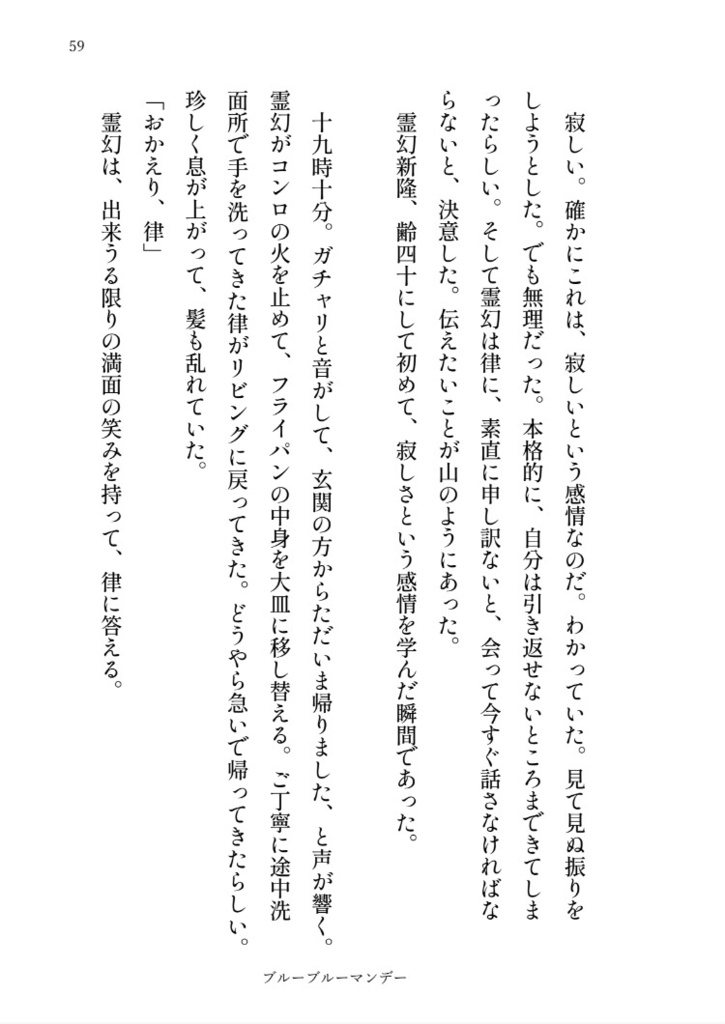 59
寂しい。確かにこれは、寂しいという感情なのだ。わかっていた。見て見ぬ振りを
しようとした。でも無理だった。本格的に、自分は引き返せないところまできてしま
ったらしい。そして霊幻は律に、素直に申し訳ないと、会って今すぐ話さなければな
らないと、決意した。伝えたいことが山のようにあった。
霊幻新隆、齢四十にして初めて、寂しさという感情を学んだ瞬間であった。
十九時十分。ガチャリと音がして、玄関の方からただいま帰りました、と声が響く。
霊幻がコンロの火を止めて、フライパンの中身を大皿に移し替える。ご丁寧に途中洗
面所で手を洗ってきた律がリビングに戻ってきた。どうやら急いで帰ってきたらしい。
珍しく息が上がって、髪も乱れていた。
「おかえり、律」
霊幻は、出来うる限りの満面の笑みを持って、律に答える。
ブルーブルーマンデー